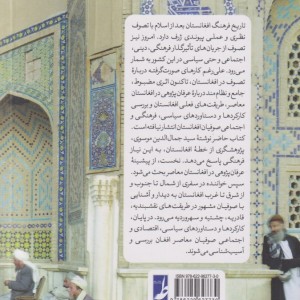 تاریخ فرهنگ افغانستان بعد از اسلام با تصوف
نظری و عملی پیوندی ژرف دارد. امروز نیز
تصوف از جریان‌های تأثیرگذار فرهنگی، دینی،
اجتماعی و حتی سیاسی در این کشور به شمار
می‌رود. علی‌رغم کارهای صورت‌گرفته دربارهٔ
تصوف در افغانستان، تاکنون اثری مضبوط،
جامع و نظام‌مند دربارهٔ عرفان‌پژوهی در افغانستان
معاصر، طریقت‌های فعلی افغانستان و بررسی
کارکردها و دستاوردهای سیاسی، فرهنگی و
اجتماعی صوفیان افغانستان انتشار نیافته است.
کتاب حاضر نوشتهٔ سید جمال‌الدین موسوی،
پژوهشگری از خطهٔ افغانستان، به این نیاز
فرهنگی پاسخ می‌دهد. نخست، از پیشینهٔ
عرفان‌پژوهی در افغانستان معاصر بحث می‌شود.
سپس خواننده در سفری از شمال تا جنوب و
از شرق تا غرب افغانستان به دیدار و آشنایی
با صوفیان مشهور در طریقت‌های نقشبندیه،
قادریه، چشتیه و سهروردیه می‌رود. در پایان،
کارکردها و دستاوردهای سیاسی، اقتصادی و
اجتماعی صوفیان معاصر افغان بررسی و
آسیب‌شناسی می‌شوند.